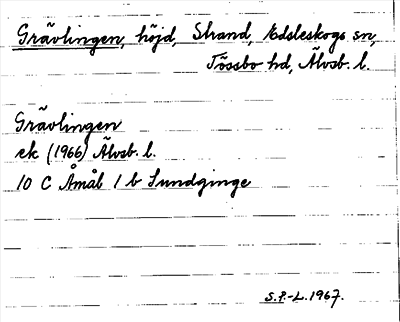 Grävlingen, höjd, Strand, Edsleskogs sn,
Tössbo hd, Älvsb. l.
Grävlingen
ek (1966) Älvsb. l.
10 C Åmål 1 b Sundginge
S.P.-L. 1967.